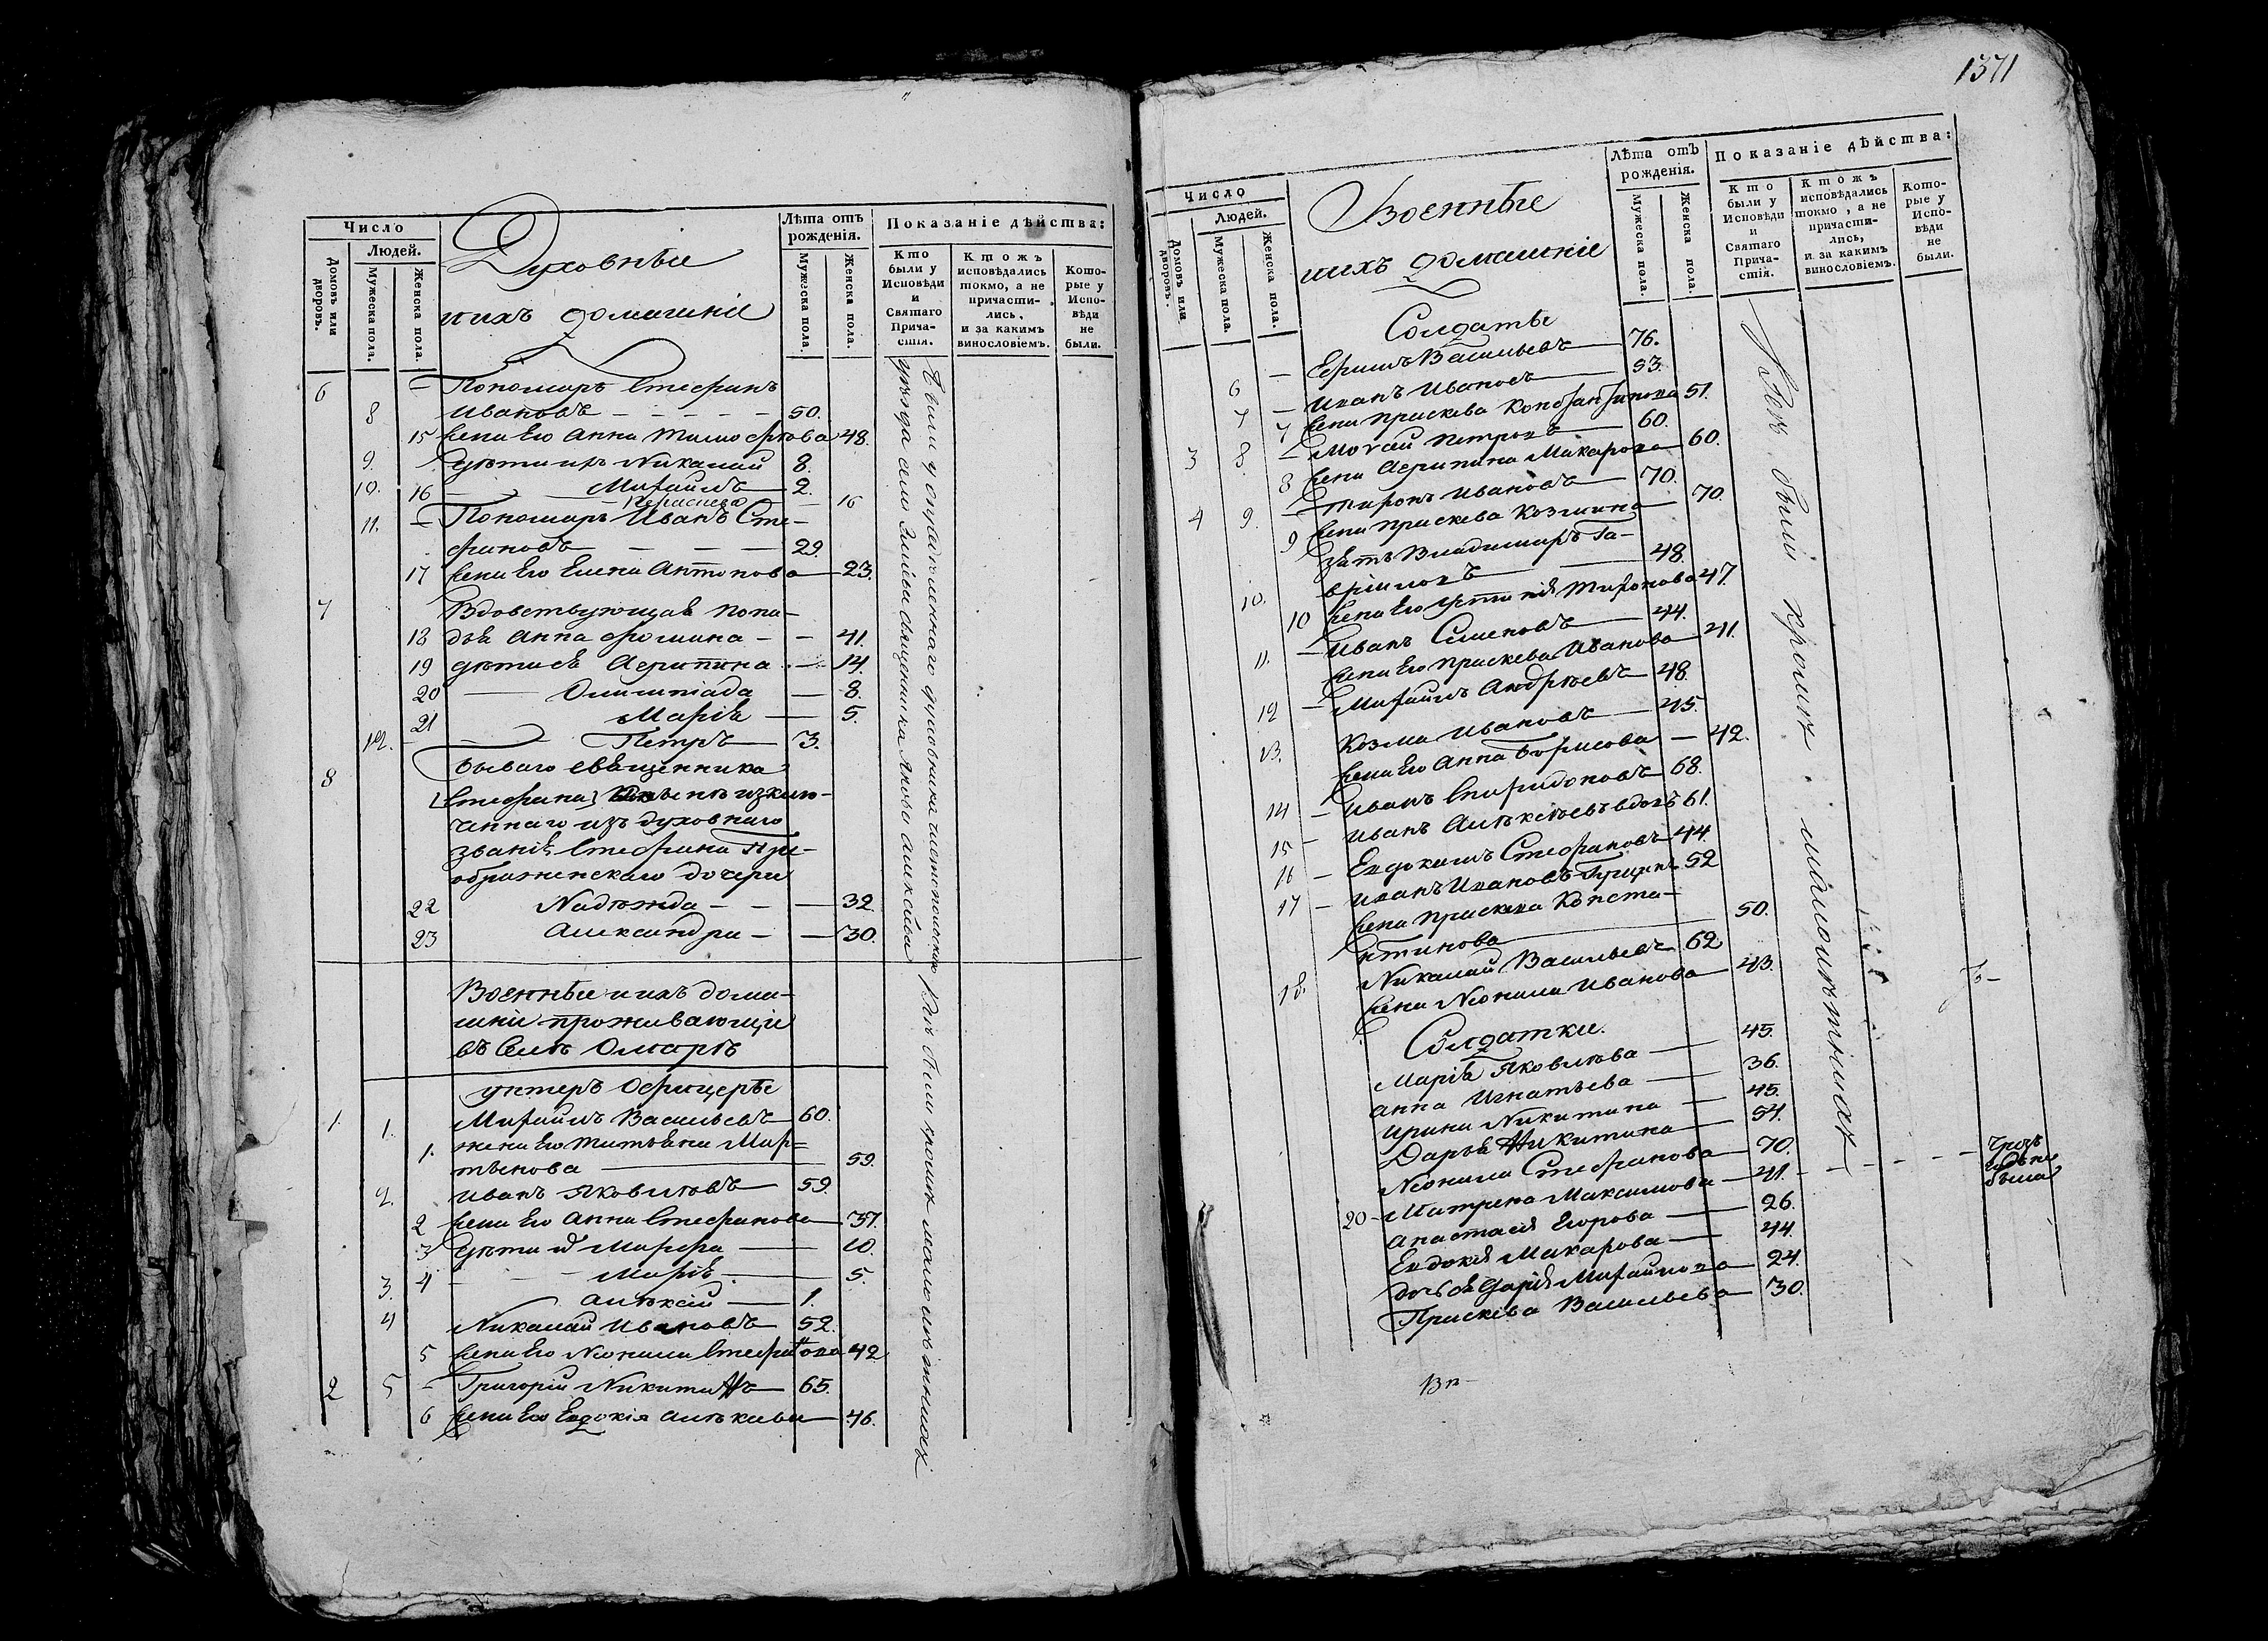 Число
Людей.
Домовъ или дворовъ.
Мужеска пола.
Женска пола.
Духовныя
и ихъ домашніе
Лѣта отъ рожденія.
Мужеска пола.
Женска пола.
Показаніе дѣйства:
Кто были у Исповѣди и Святаго Причастія.
Ктожъ исповѣдались токмо, а не причастились, и за какимъ винословіемъ.
Которые у Исповѣди не были.
6 — Пономарь Стефанъ
8 Ивановъ — 50.
15 жена Его Анна Тимофѣева 48.
9. дѣти ихъ Николай 8.
10. Михаилъ 2.
16 — 16
11. — Пономарь Иванъ Сте-
фановъ — — — 29.
17 жена Его Елена Антонова — 23.
7 Вдовствующая попа-
18 дья Анна Фомина — — 41.
19 дѣти ея Агрипина — 14.
20 — Олимпіада — 8.
21 Марія — 5.
12. — Петръ — 3.
8 бываго священника
Стефана изклю-
ченнаго изъ духовнаго
званія Стефана Пре-
ображенскаго дочери
22 Надежда — — — 32
23 Александра — — 30.
Военныя и ихъ дома-
шніе проживающіе
въ Селѣ Омарѣ
Унтеръ Офицеры
1. 1. Михаилъ Васильевъ 60.
1. жена Его Татьяна Мар=
тынова — 59.
2. Иванъ Яковлевъ — 59.
2 жена Его Анна Стефанова 37.
3 дѣти их Марфа — 10.
4 — Марія — 5.
3. Алексѣй — 1.
4 Николай Ивановъ 52.
5 жена Его Неонила Стефанова 42
2 5 — Григорій Никитинъ 65.
6 жена Его Евдокія Алексѣева 46.
Были у опредѣленнаго духовника чистопольскаго
уѣзда села священника Якова Алексѣева
Всѣ были кромѣ малолѣтныхъ
1371
Число
Людей.
Домовъ или дворовъ.
Мужеска пола.
Женска пола.
Военныя
и ихъ домашніе
Лѣта отъ рожденія.
Мужеска пола.
Женска пола.
Показаніе дѣйства:
Кто были у Исповѣди и Святаго Причастія.
Ктожъ исповѣдались токмо, а не причастились, и за какимъ винословіемъ.
Которые у Исповѣди не были.
Солдаты
6 — Ефимъ Васильевъ — 76.
7 — Иванъ Ивановъ — 53.
7 жена Прасковья Константинова 51.
3 8 — Петровъ — 60.
8 жена Агрипина Макарова — 60.
4 9. — Миронъ Ивановъ — 70.
9 жена Прасковья Козмина 70.
зять Владимиръ Га-
10. вріиловъ — 48.
10 жена Его Устинія Миронова 47.
11. — Иванъ Семеновъ — 44.
жена Его Прасковья Иванова — 41.
12 — Михаилъ Андреевъ — 48.
13. Козма Ивановъ — 45.
жена Его Анна Борисова — 42.
14 — Иванъ Спиридоновъ 68.
15 — Иванъ Алексѣевъ вдовъ 61.
16 — Евдокимъ Стефановъ 44.
17 — Иванъ Ивановъ 52
жена Прасковья Конста-
нтинова — 50.
18. Николай Васильевъ 62
жена Неонила Иванова — 43.
Солдатки.
Марія Яковлева — 45.
Анна Игнатьева — 36.
Ирина Никитина — 45.
Дарья Никитина — 54.
Неонила Стефанова — 70.
20 — Матрена Максимова — 41.
Анастасія Егорова — 26.
Евдокія Макарова — 44.
дочь ея Дарія Михаилова 24.
Прасковья Васильева — 30.
Всѣ были кромѣ малолѣтныхъ
была